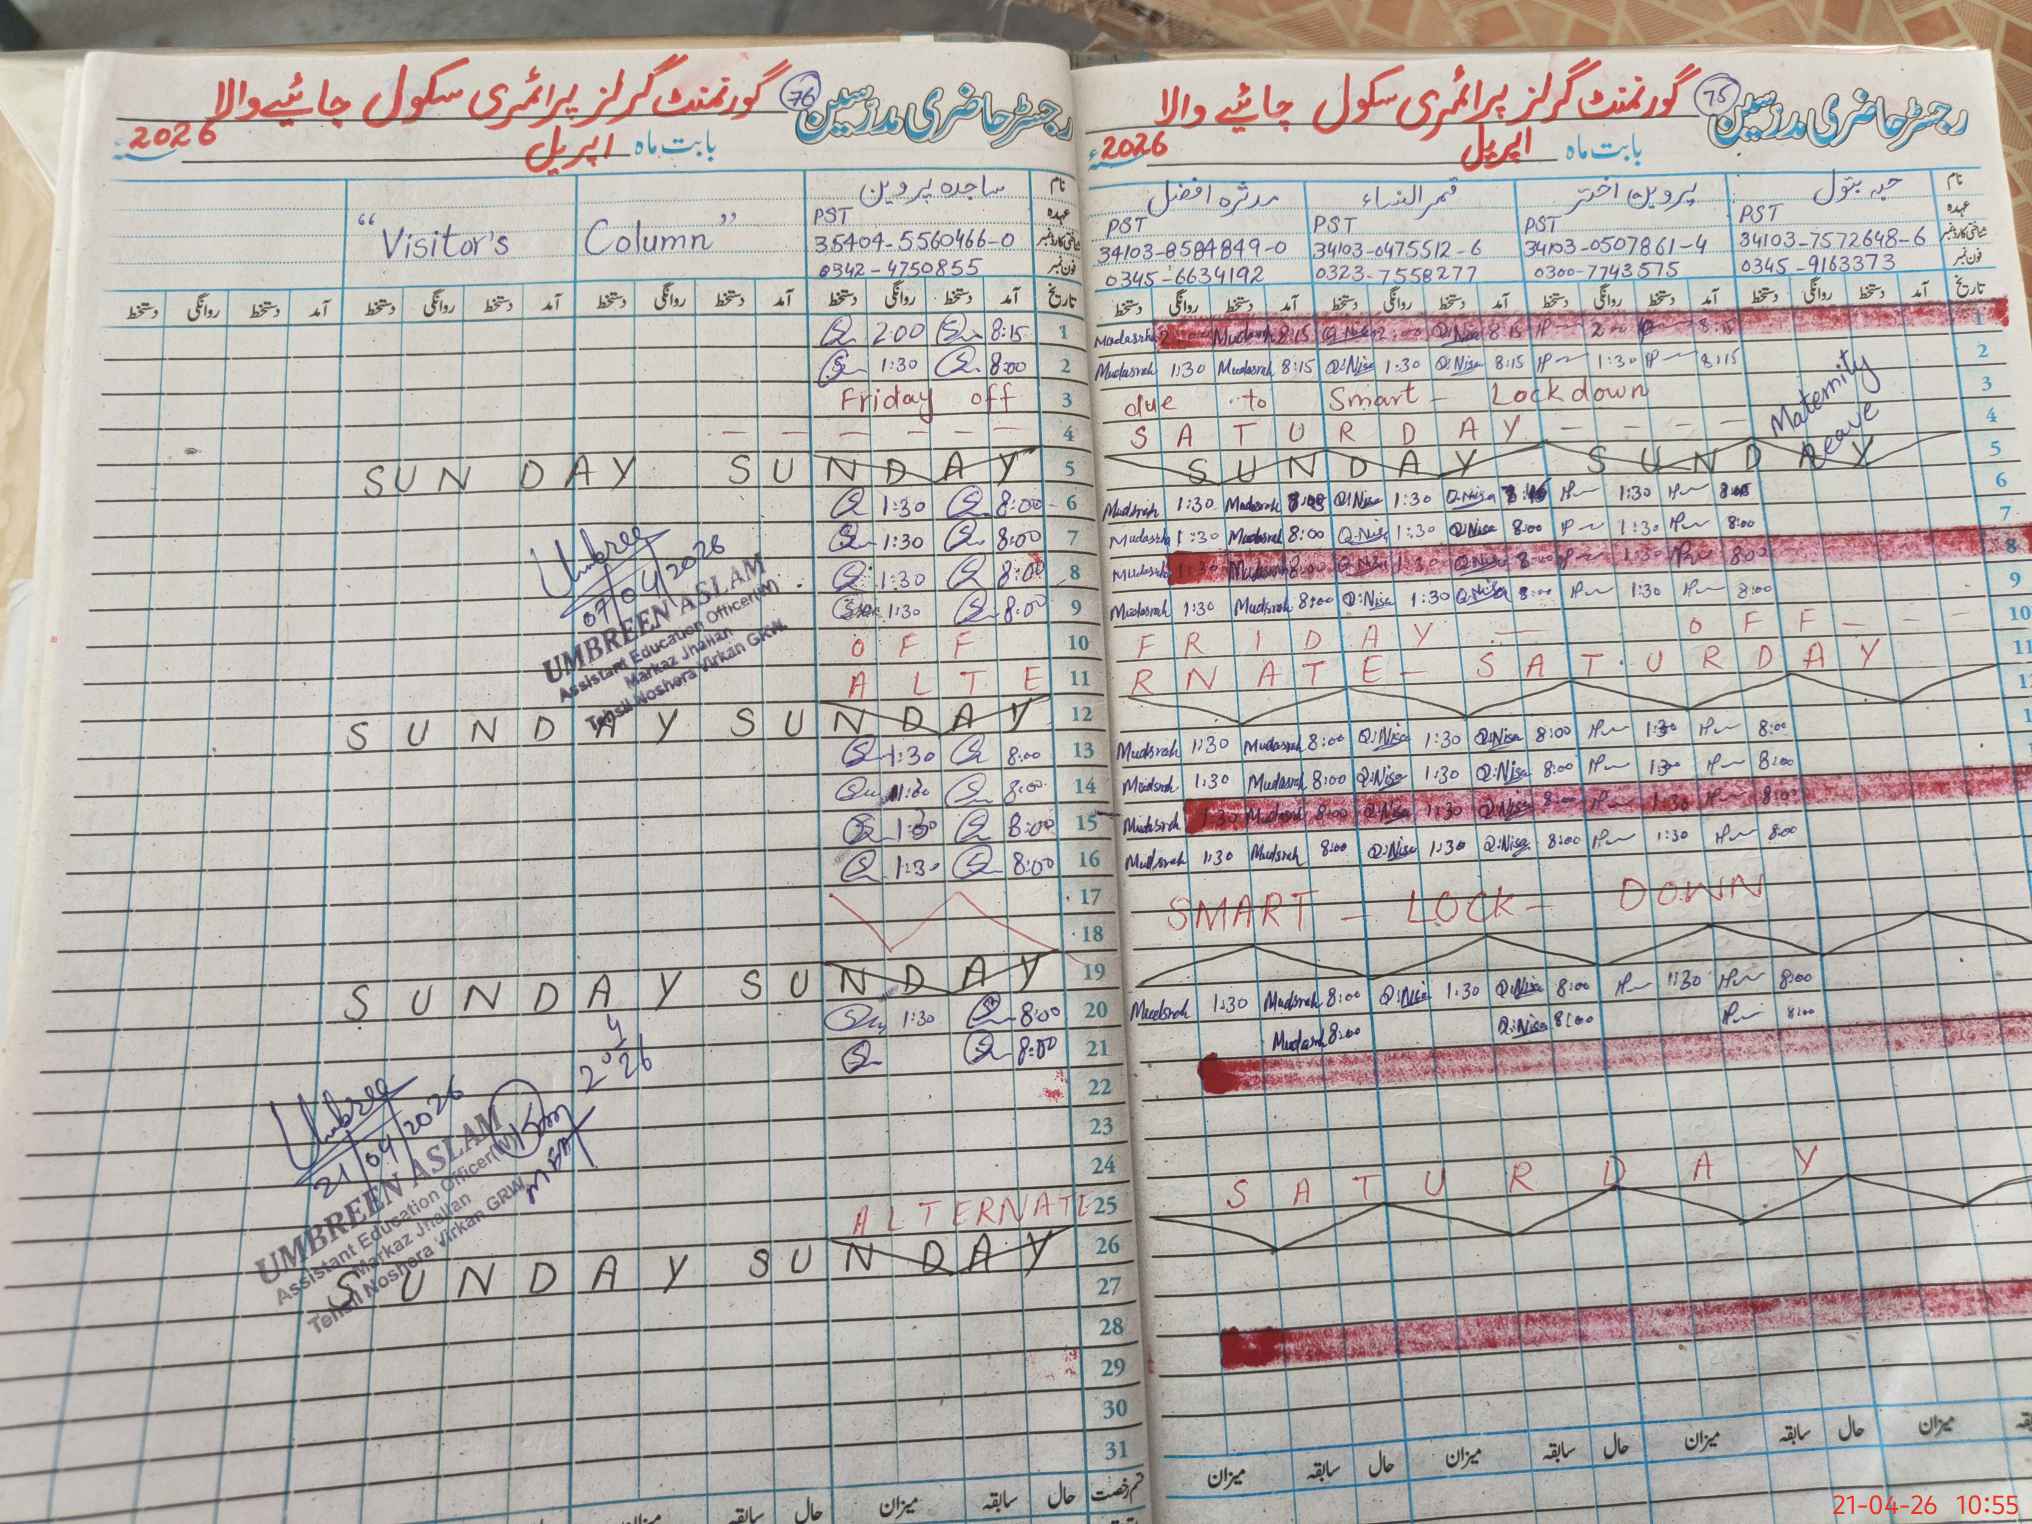 رجسٹر حاضری مدرسین 75 گورنمنٹ گرلز پرائمری سکول چاہئیے والا
بابت ماہ اپریل 2026ء
نام حبہ بتول پروین اختر قمر النساء مدثرہ افضل
عہدہ PST PST PST PST
شناختی کارڈ نمبر 34103-7572648-6 34103-0507861-4 34103-0475512-6 34103-8584849-0
فون نمبر 0345-9163373 0300-7743575 0323-7558277 0345-6634192
تاریخ آمد دستخط روانگی دستخط آمد دستخط روانگی دستخط آمد دستخط روانگی دستخط آمد دستخط روانگی دستخط
Mudasrah 2 Mudasrah 8:15 Q:Nisa 2:00 Q:Nisa 8:15 2:00 8:15 1
Mudasrah 1:30 Mudasrah 8:15 Q:Nisa 1:30 Q:Nisa 8:15 1:30 8:15 2
due to Smart - Lockdown 3
SATURDAY - - - - 4
Maternity Leave
SUNDAY SUNDAY 5
Mudsrah 1:30 Mudasrah Q:Nisa 1:30 Q:Nisa 1:30 6
Mudasrah 1:30 Mudasrah 8:00 Q:Nisa 1:30 Q:Nisa 8:00 1:30 8:00 7
Mudasrah 1:30 Mudasrah 8:00 Q:Nisa 1:30 Q:Nisa 8:00 1:30 8:00 8
Mudasrah 1:30 Mudsrah 8:00 Q:Nisa 1:30 Q:Nisa 8:00 1:30 8:00 9
FRIDAY - OFF - - - 10
RNATE - SATURDAY 11
Mudsrah 1:30 Mudasrah 8:00 Q:Nisa 1:30 Q:Nisa 8:00 1:30 8:00
Mudsrah 1:30 Mudasrah 8:00 Q:Nisa 1:30 Q:Nisa 8:00 1:30 8:00
Mudsrah 1:30 Mudasrah 8:00 Q:Nisa 1:30 Q:Nisa 8:00 1:30 8:00
Mudsrah 1:30 Mudsrah 8:00 Q:Nisa 1:30 Q:Nisa 8:00 1:30 8:00
SMART - LOCK - DOWN
Mudsrah 1:30 Mudsrah 8:00 Q:Nisa 1:30 Q:Nisa 8:00 1:30 8:00
Mudasrah 8:00 Q:Nisa 8:00 8:00
SATURDAY
میزان سابقہ حال میزان سابقہ حال میزان سابقہ حال میزان
رجسٹر حاضری مدرسین 76 گورنمنٹ گرلز پرائمری سکول چاہئیے والا
بابت ماہ اپریل 2026ء
نام ساجدہ پروین
عہدہ PST
"Visitor's Column"
شناختی کارڈ نمبر 35404-5560466-0
فون نمبر 0342-4750855
تاریخ آمد دستخط روانگی دستخط آمد دستخط روانگی دستخط آمد دستخط روانگی دستخط آمد دستخط روانگی دستخط
2:00 8:15 1
1:30 8:00 2
Friday off 3
- - - - - - 4
SUNDAY SUNDAY 5
1:30 8:00 6
1:30 8:00 7
1:30 8:00 8
1:30 8:00 9
OFF 10
ALTE 11
SUNDAY SUNDAY 12
1:30 8:00 13
8:00 14
1:30 8:00 15
1:30 8:00 16
17
18
SUNDAY SUNDAY 19
1:30 8:00 20
8:00 21
22
23
24
ALTERNATE 25
SUNDAY SUNDAY 26
27
28
29
30
31
قسم رخصت حال سابقہ میزان حال سابقہ میزان
Umbree
07/04/2026
UMBREEN ASLAM
Assistant Education Officer(W)
Markaz Jhallan
Tehsil Noshera Virkan GRW.
Umbree
21/04/2026
UMBREEN ASLAM
Assistant Education Officer(W)
Markaz Jhallan
Tehsil Noshera Virkan GRW.
MEA
21-04-26 10:55